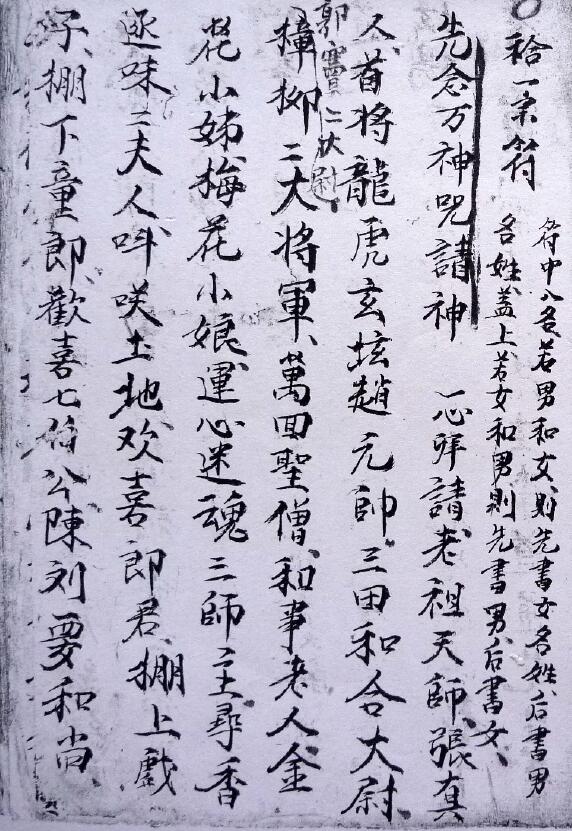 袷一宗符
符中八名若男和女、则先書女名姓、后書男
名姓、盖上若女和男、则先書男、后書女、
先念万神咒請神 一心拜請老祖天師、張真
人、首将龍虎玄坛趙元帥三田和合大尉、
郭 二大尉
二大将軍、萬回聖僧、和事老人金
花小姊、梅花小娘、運心迷魂三師主尋香
逐味二夫人、咲土地欢喜郎君、棚上戲
子、棚下童郎、歡喜七伯公陳刘要和尚、